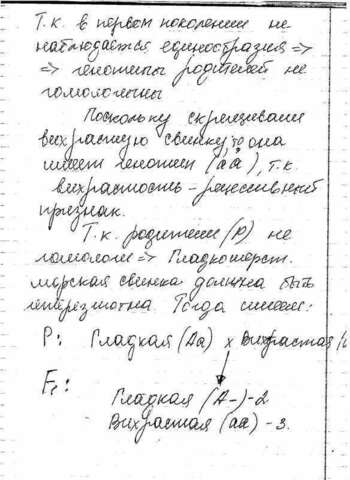 Т.к. в первом поколении не
наблюдается единообразия =>
=> генотипы родителей не
гомологичны
Поскольку скрещивали
вихрастую свинку, то она
имеет генотип (аа), т.к.
вихрастость – рецессивный
признак.
Т.к. родители (Р) не
гомологи => Гладкошерст.
морская свинка должна быть
гетерозготна Тогда имеем:
Р: Гладкая (Аа) х Вихрастая
F₁:
Гладкая (А-) - 2
Вихрастая (аа) - 3.